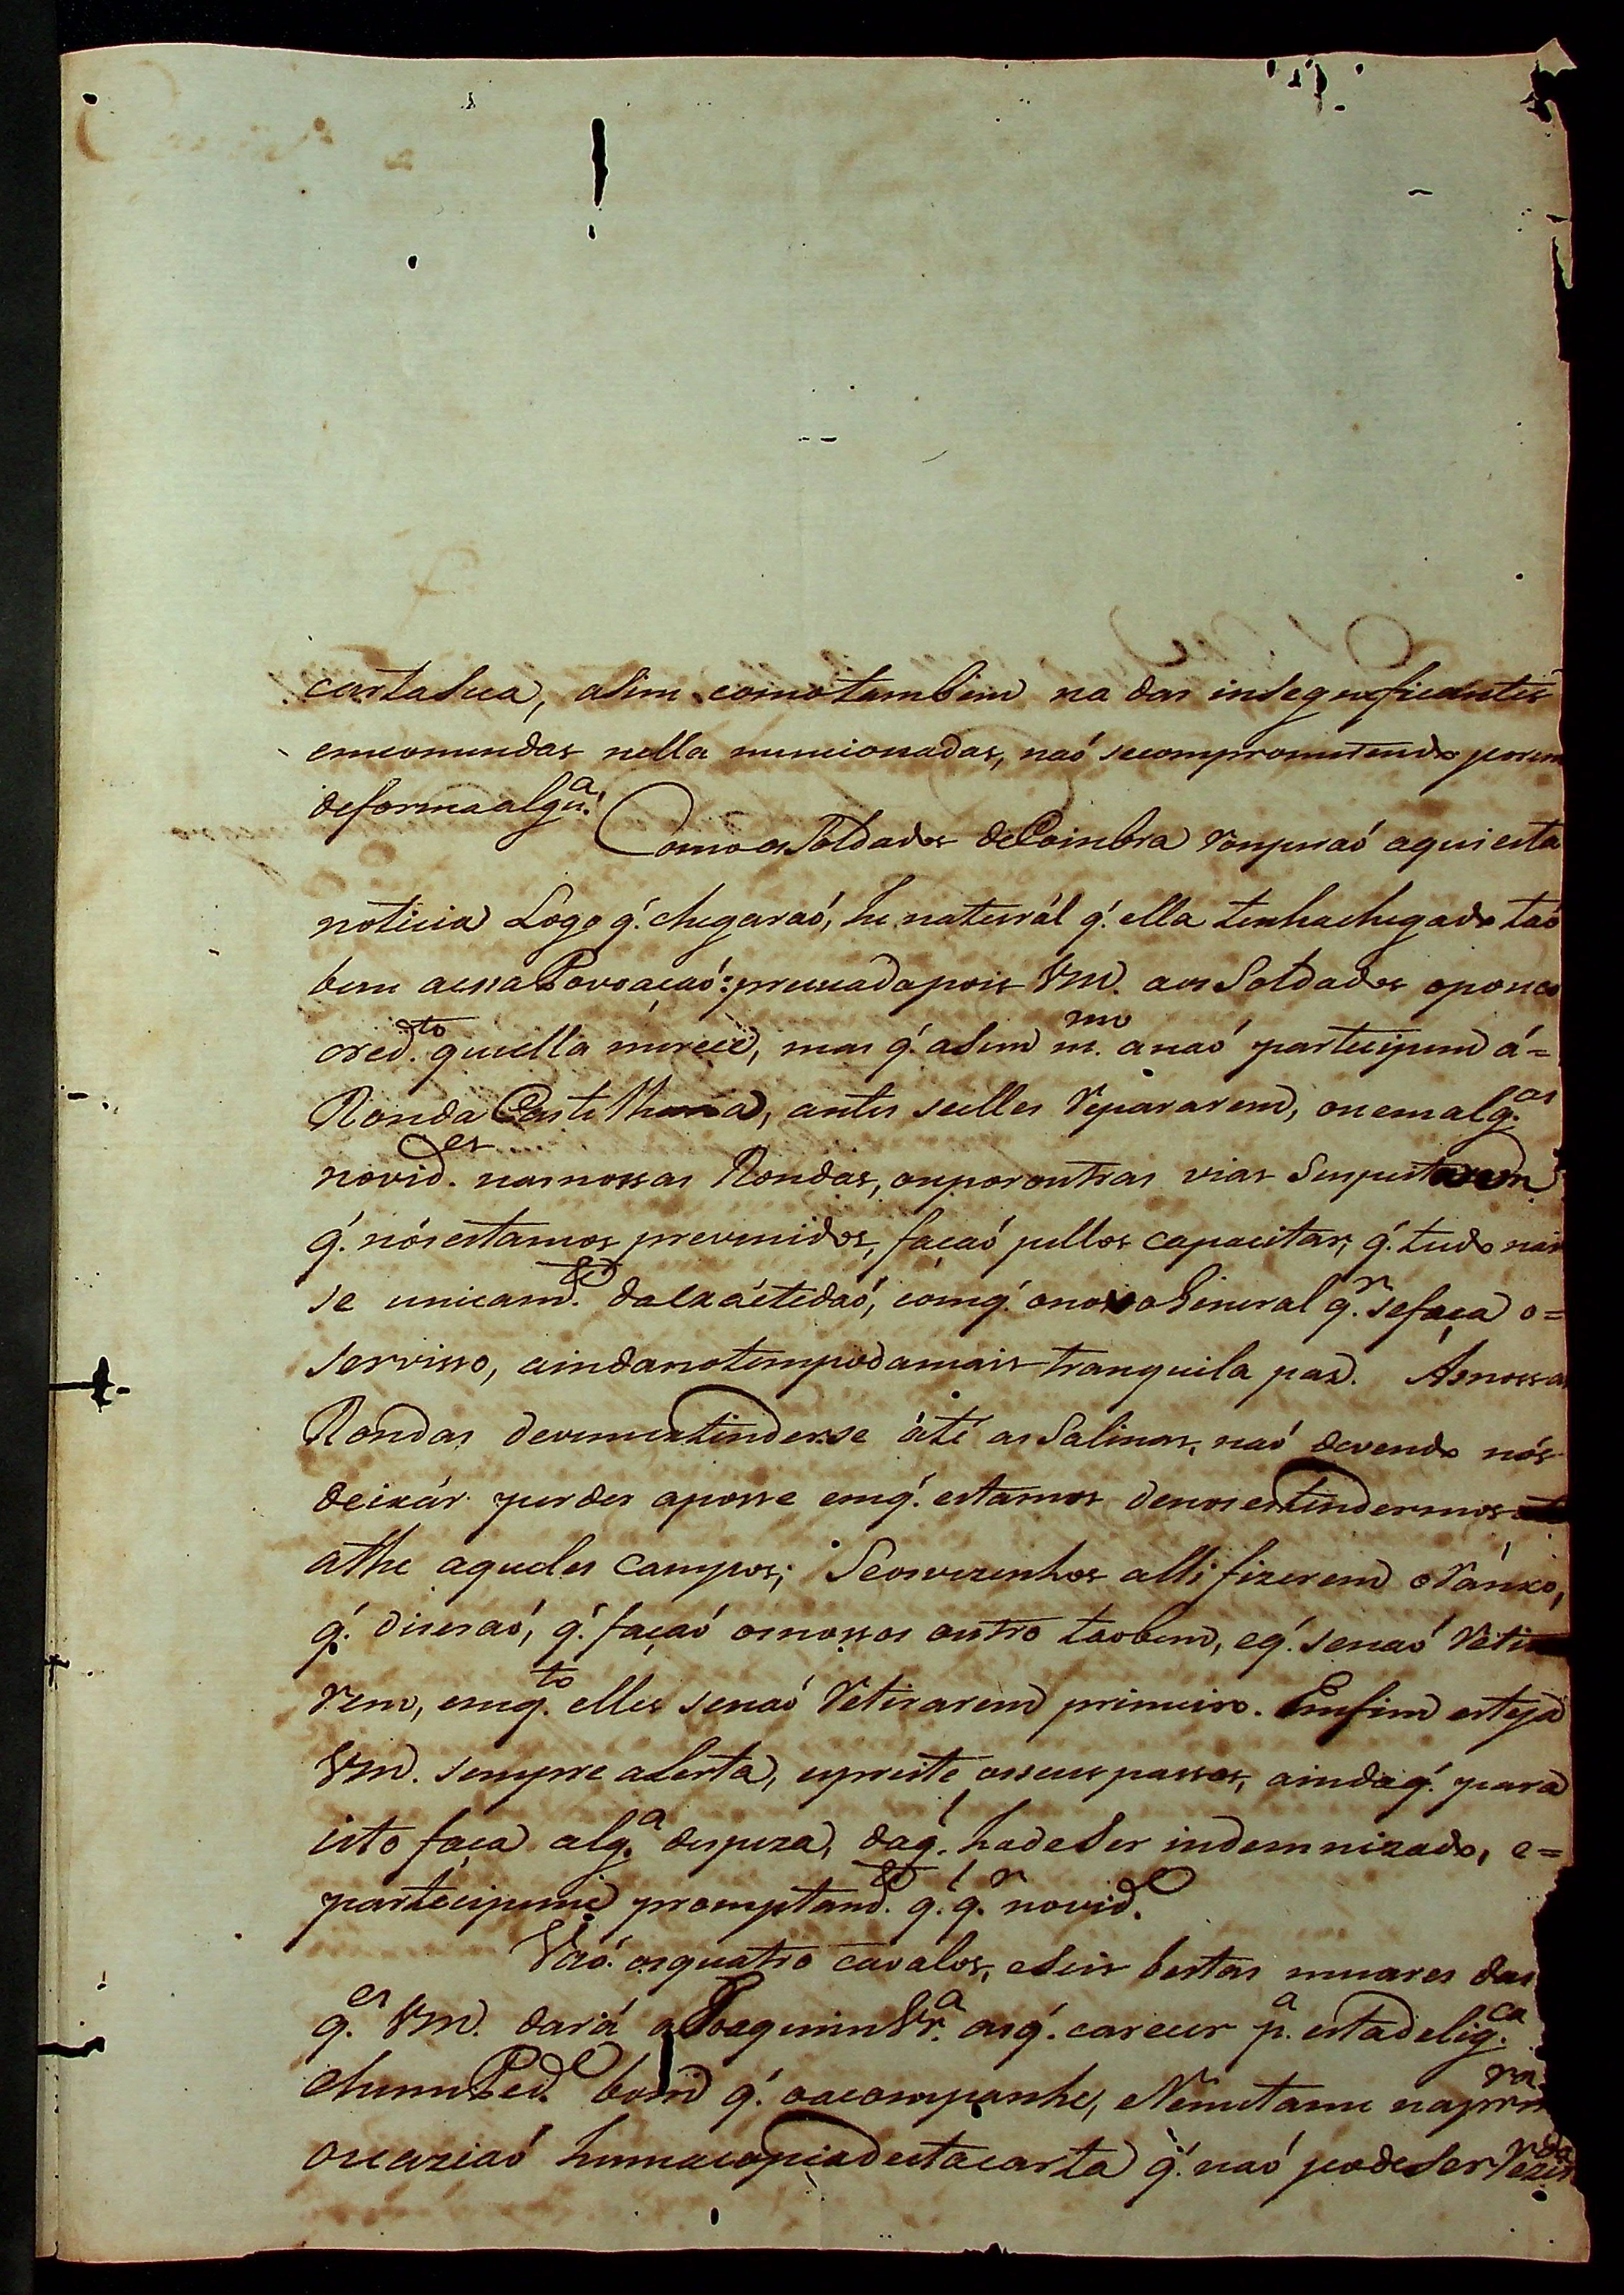 carta sua, asim como tambem na das insegneficantes
emcomendas nella mencionadas, naó se comprometendo porem
de forma algũa.
Como os Soldados de Coimbra romperaó aqui esta
noticia Logo q́. chegaraó, he naturál q́. ella tenha chegado taó
bem a essa Povoaçaó: persuada pois Vm. aos Soldados o pouco
cred.to que ella merece, mas q́. asim m.mo a naó participem á=
Ronda Castelhana, antes se elles repararem, ou em alg.as
novid.es nas nossas Rondas, ou por outras vias suspeitarem
q́. nós estamos prevenidos, façaó pellos capacitar, q́. tudo nas
se unicam.te da exáctedaó, com q́. o novo General q.r se faça o=
servisso, ainda no tempo da mais tranquila paz. As nossas
Rondas devem extender se áté as Salinas, naó devendo nós
deixár perder a posse em q́. estamos de nos estendermos
athe aqueles Campos; Se os vezinhos alli fizerem o ránxo,
q́. diseraó, q́. façaó os nossos outro taobem, e q́. se naó retira
rem, em q.to elles se naó retirarem primeiro. Emfim esteja
Vm. sempre alerta, e espreite os seus passos, ainda q́. para
isto faça alg.a despeza, da q́. hade ser indemnizado, e=
participeme promptam.te q́. q.r novid.e
Vaó os quatro cavalos, e seis bestas muares das
q.es Vm. dará a Joaquim Vr.a as q́. carecer p.a esta delig.ca
e hum Ped.e bom q́. o acompanhe, e Remetame na prm.ra
occaziaó huma copia desta carta q́. naó pode ser Rezis